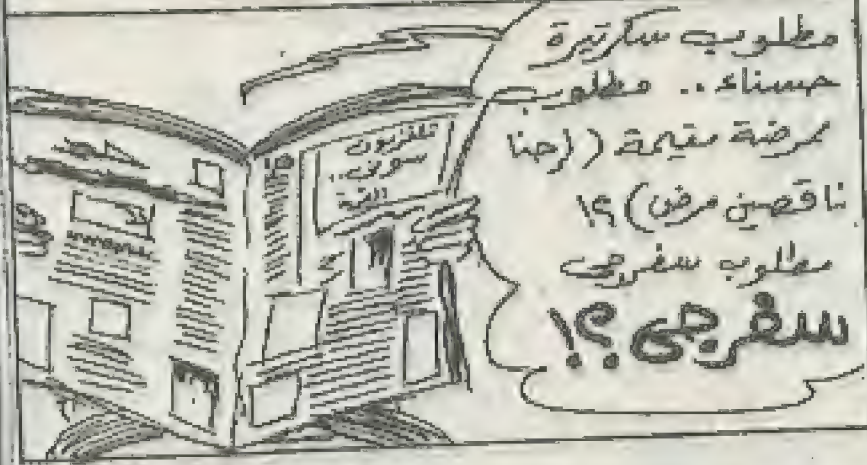 مطلوب سكرتيرة
حسناء.. مطلوب
ممرضة مقيمة ((حنا
ناقصين مرض)؟!
مطلوب سفرجي
سفرجي؟!
تلفزيون
سوني..